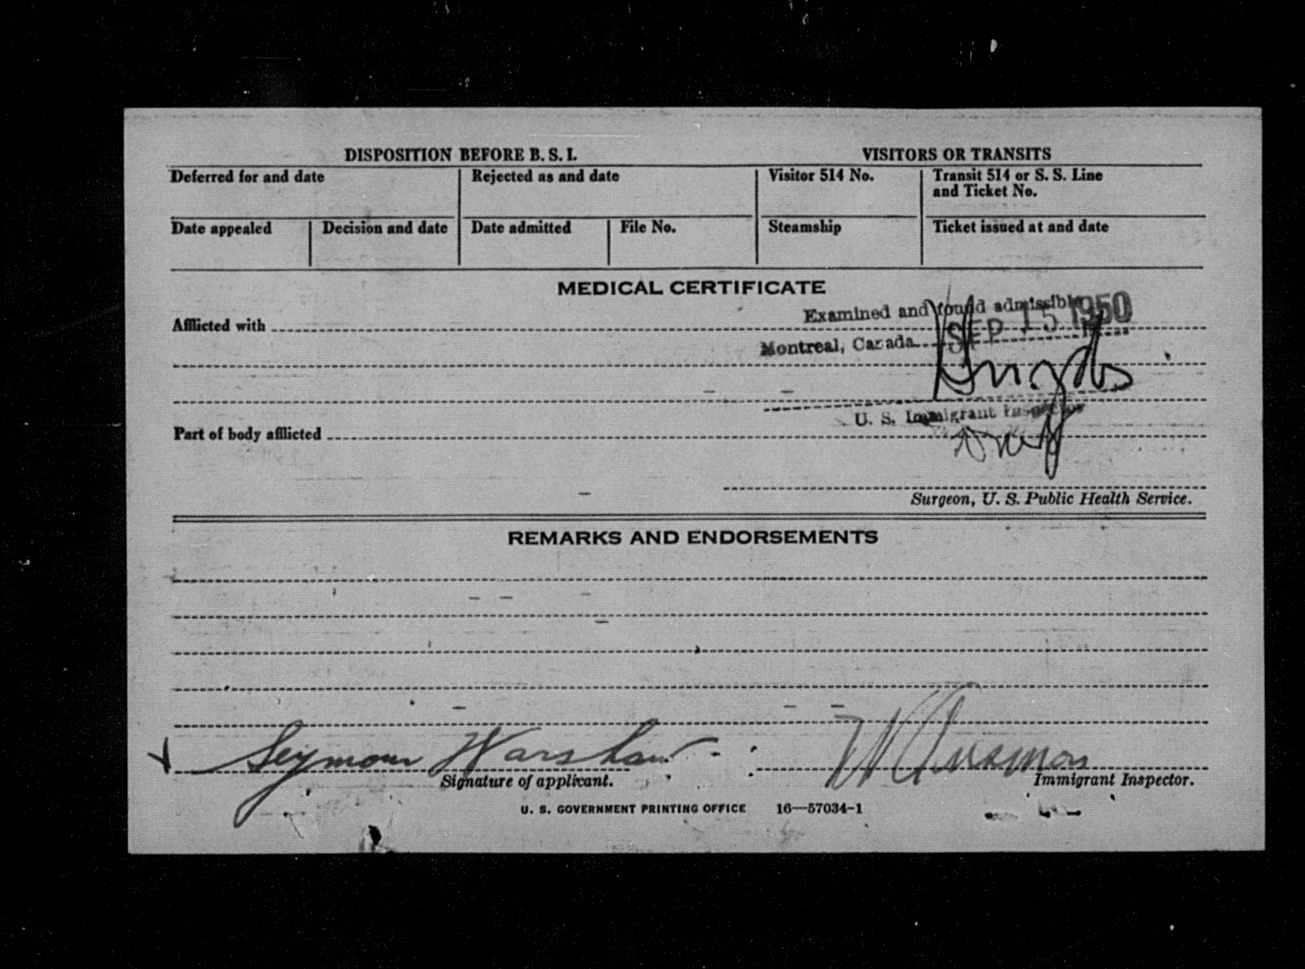 DISPOSITION BEFORE B. S. I.
VISITORS OR TRANSITS
Deferred for and date
Rejected as and date
Visitor 514 No.
Transit 514 or S. S. Line
and Ticket No.
Date appealed
Decision and date
Date admitted
File No.
Steamship
Ticket issued at and date
MEDICAL CERTIFICATE
Examined and found admissible
Afflicted with
Montreal, Canada SEP 15 1950
U. S. Immigrant Inspector
Part of body afflicted
Surgeon, U. S. Public Health Service.
REMARKS AND ENDORSEMENTS
Seymour Warshaw
Signature of applicant.
Immigrant Inspector.
U. S. GOVERNMENT PRINTING OFFICE 16—57034-1